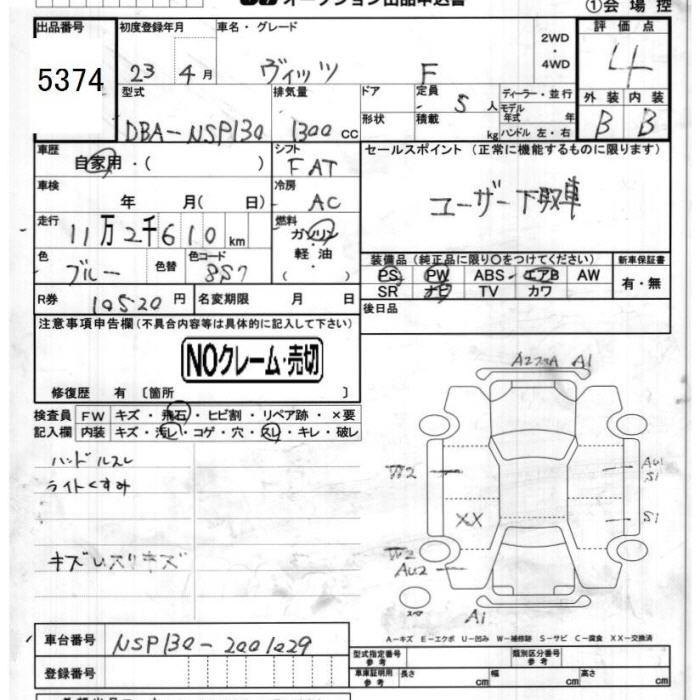 オークション出品申込書
①会場控
出品番号 初度登録年月 車名・グレード 2WD・4WD 評価点
5374 23 4月 ヴィッツ F 4
型式 排気量 ドア 定員 5人 ディーラー・並行 外装 内装
モデル年式 年
DBA-NSP130 1300cc 形状 積載 kg ハンドル 左・右 B B
車歴 自家用・( ) シフト FAT セールスポイント (正常に機能するものに限ります)
車検 年 月( 日) 冷房 AC ユーザー下取車
走行 11万2千610km 燃料 ガソリン・軽油・( )
色 ブルー 色替 色コード 8S7
装備品 (純正品に限り○をつけてください) 新車保証書
PS PW ABS エアB AW 有・無
SR ナビ TV カワ
R券 10520円 名変期限 月 日 後日品
注意事項申告欄 (不具合内容等は具体的に記入して下さい)
NOクレーム・売切
修復歴 有 〔箇所 〕
検査員 FW キズ・飛石・ヒビ割・リペア跡・×要
記入欄 内装 キズ・汚レ・コゲ・穴・スレ・キレ・破レ
ハンドルスレ
ライトくすみ
A1
W2
S1
XX
S1
W2
AU2
A1
A-キズ E-エクボ U-凹み W-補修跡 S-サビ C-腐食 XX-交換済
車台番号 NSP130-2001029
型式指定番号 参考 類別区分番号 参考
登録番号
車庫証明用 参考 長さ cm 幅 cm 高さ cm